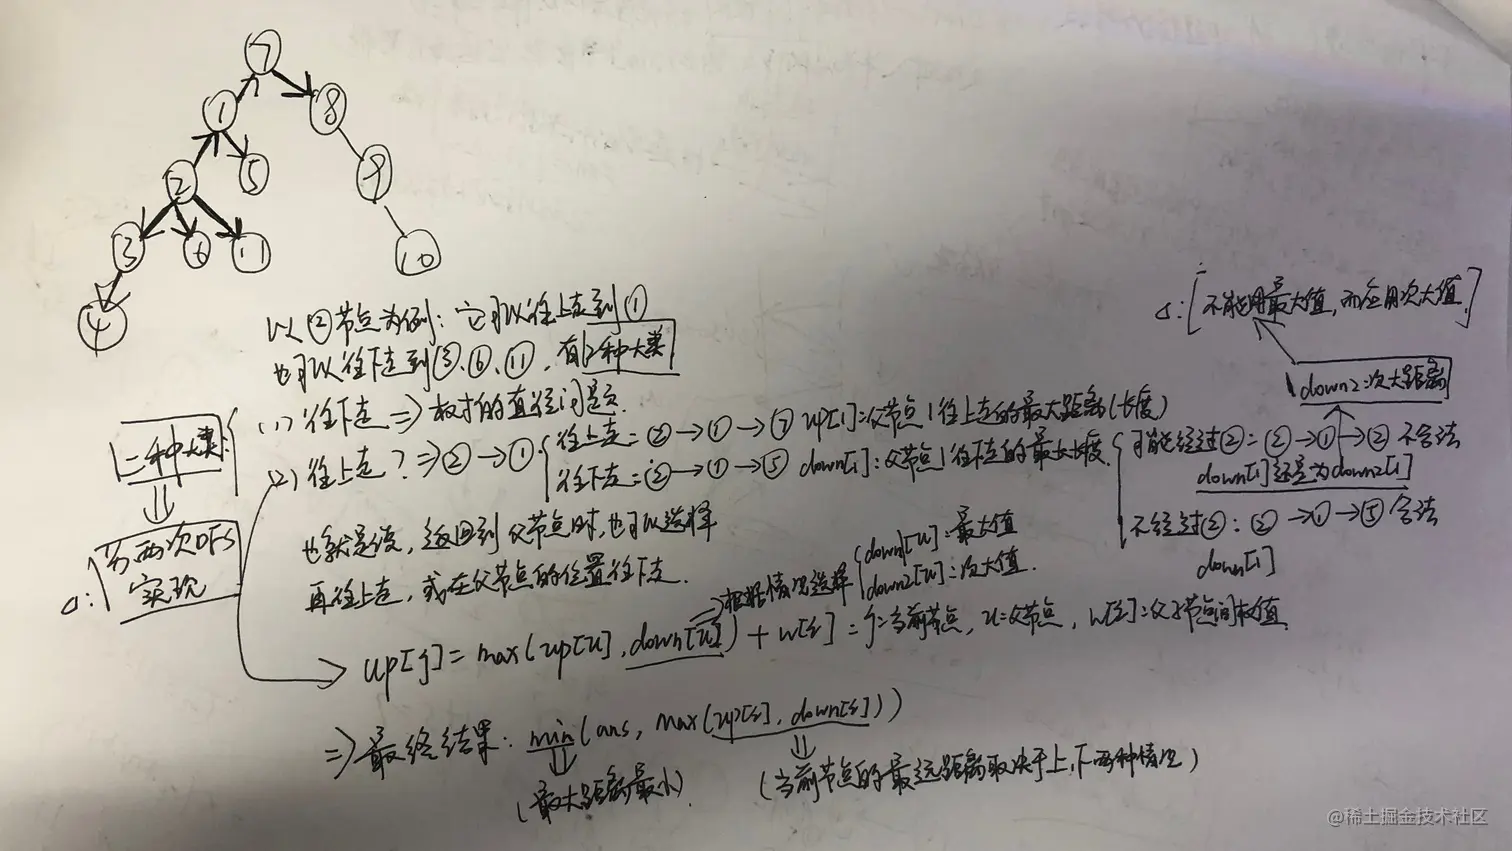 7
1
8
2
5
9
3
6
11
10
4
以②节点为例：它可以往上走到①
也可以往下走到③、⑥、⑪，有2种大类
△：[不能用最大值，而应用次大值]
down2：次大距离
二种大类：
(1) 往下走 => 树的直径问题
(2) 往上走？=> ②→①
往上走：②→①→⑦ up[1]：父节点1往上走的最大距离(长度)
往下走：②→①→⑤ down[1]：父节点1往下走的最大长度.
可能经过②：②→①→②不合法
down[1]还是为down2[1]
不经过②：②→①→⑤合法
down[1]
△：分两次DFS
实现
也就是说，返回到父节点时，也可以选择
再往上走，或在父节点的位置往下走.
=> 根据情况选择
down[u]：最大值
down2[u]：次大值.
up[j] = max(up[u], down[u]) + w[i] = j=当前节点，u=父节点，w[i]：父子节点间权值.
=> 最终结果：min(ans, max(up[i], down[i]))
(最大距离最小).
(当前节点的最远距离取决于上、下两种情况)
@稀土掘金技术社区